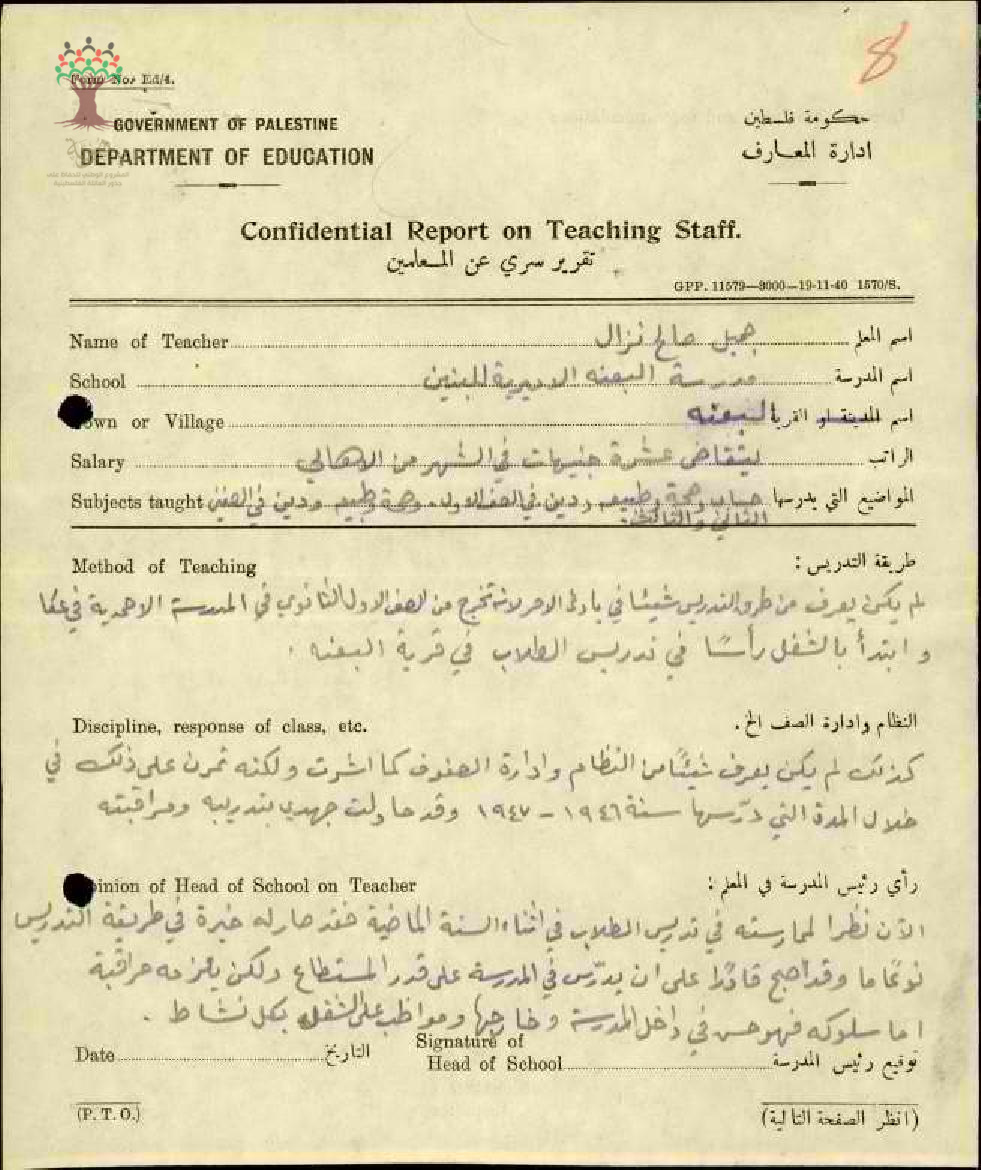 8
Form No. Ed/4.
GOVERNMENT OF PALESTINE
حكومة فلسطين
DEPARTMENT OF EDUCATION
ادارة المعارف
المشروع الوطني للحفاظ على
جذور العائلة الفلسطينية
Confidential Report on Teaching Staff.
تقرير سري عن المعلمين
GPP. 11579—9000—19-11-40 1570/S.
Name of Teacher جميل صالح نزال اسم المعلم
School مدرسة البعنه الاميرية للبنين اسم المدرسة
Town or Village البعنه اسم المدينة او القرية
Salary يتقاضى عشرة جنيهات في الشهر من الاهالي الراتب
Subjects taught حساب وصحة وطبيعه ودين في الصف الاول. وصحة وطبيعه ودين في الصفين المواضيع التي يدرسها
الثاني والثالث.
Method of Teaching طريقة التدريس :
لم يكن يعرف من طرق التدريس شيئا في بادئ الامر لانه تخرج من الصف الاول الثانوي في المدرسة الاحمدية في عكا
و ابتدأ بالشغل رأسًا في تدريس الطلاب في قرية البعنه .
Discipline, response of class, etc. النظام وادارة الصف الخ .
كذلك لم يكن يعرف شيئًا من النظام وادارة الصفوف كما اشرت ولكنه تمرن على ذلك في
خلال المدة التي درّسها سنة ١٩٤٦ - ١٩٤٧ وقد حاولت جهدي بتدريبه ومراقبته
Opinion of Head of School on Teacher رأي رئيس المدرسة في المعلم :
الآن نظرا لممارسته في تدريس الطلاب في اثناء السنة الماضية فقد صار له خبرة في طريقة التدريس
نوعًا ما وقد اصبح قادرًا على ان يدرّس في المدرسة على قدر المستطاع ولكن يلزمه مراقبة
اما سلوكه فهو حسن في داخل المدرسة و خارجها ومواظب على الشغل بكل نشاط .
Date التاريخ Signature of
Head of School توقيع رئيس المدرسة
(P. T. O.) (انظر الصفحة التالية)